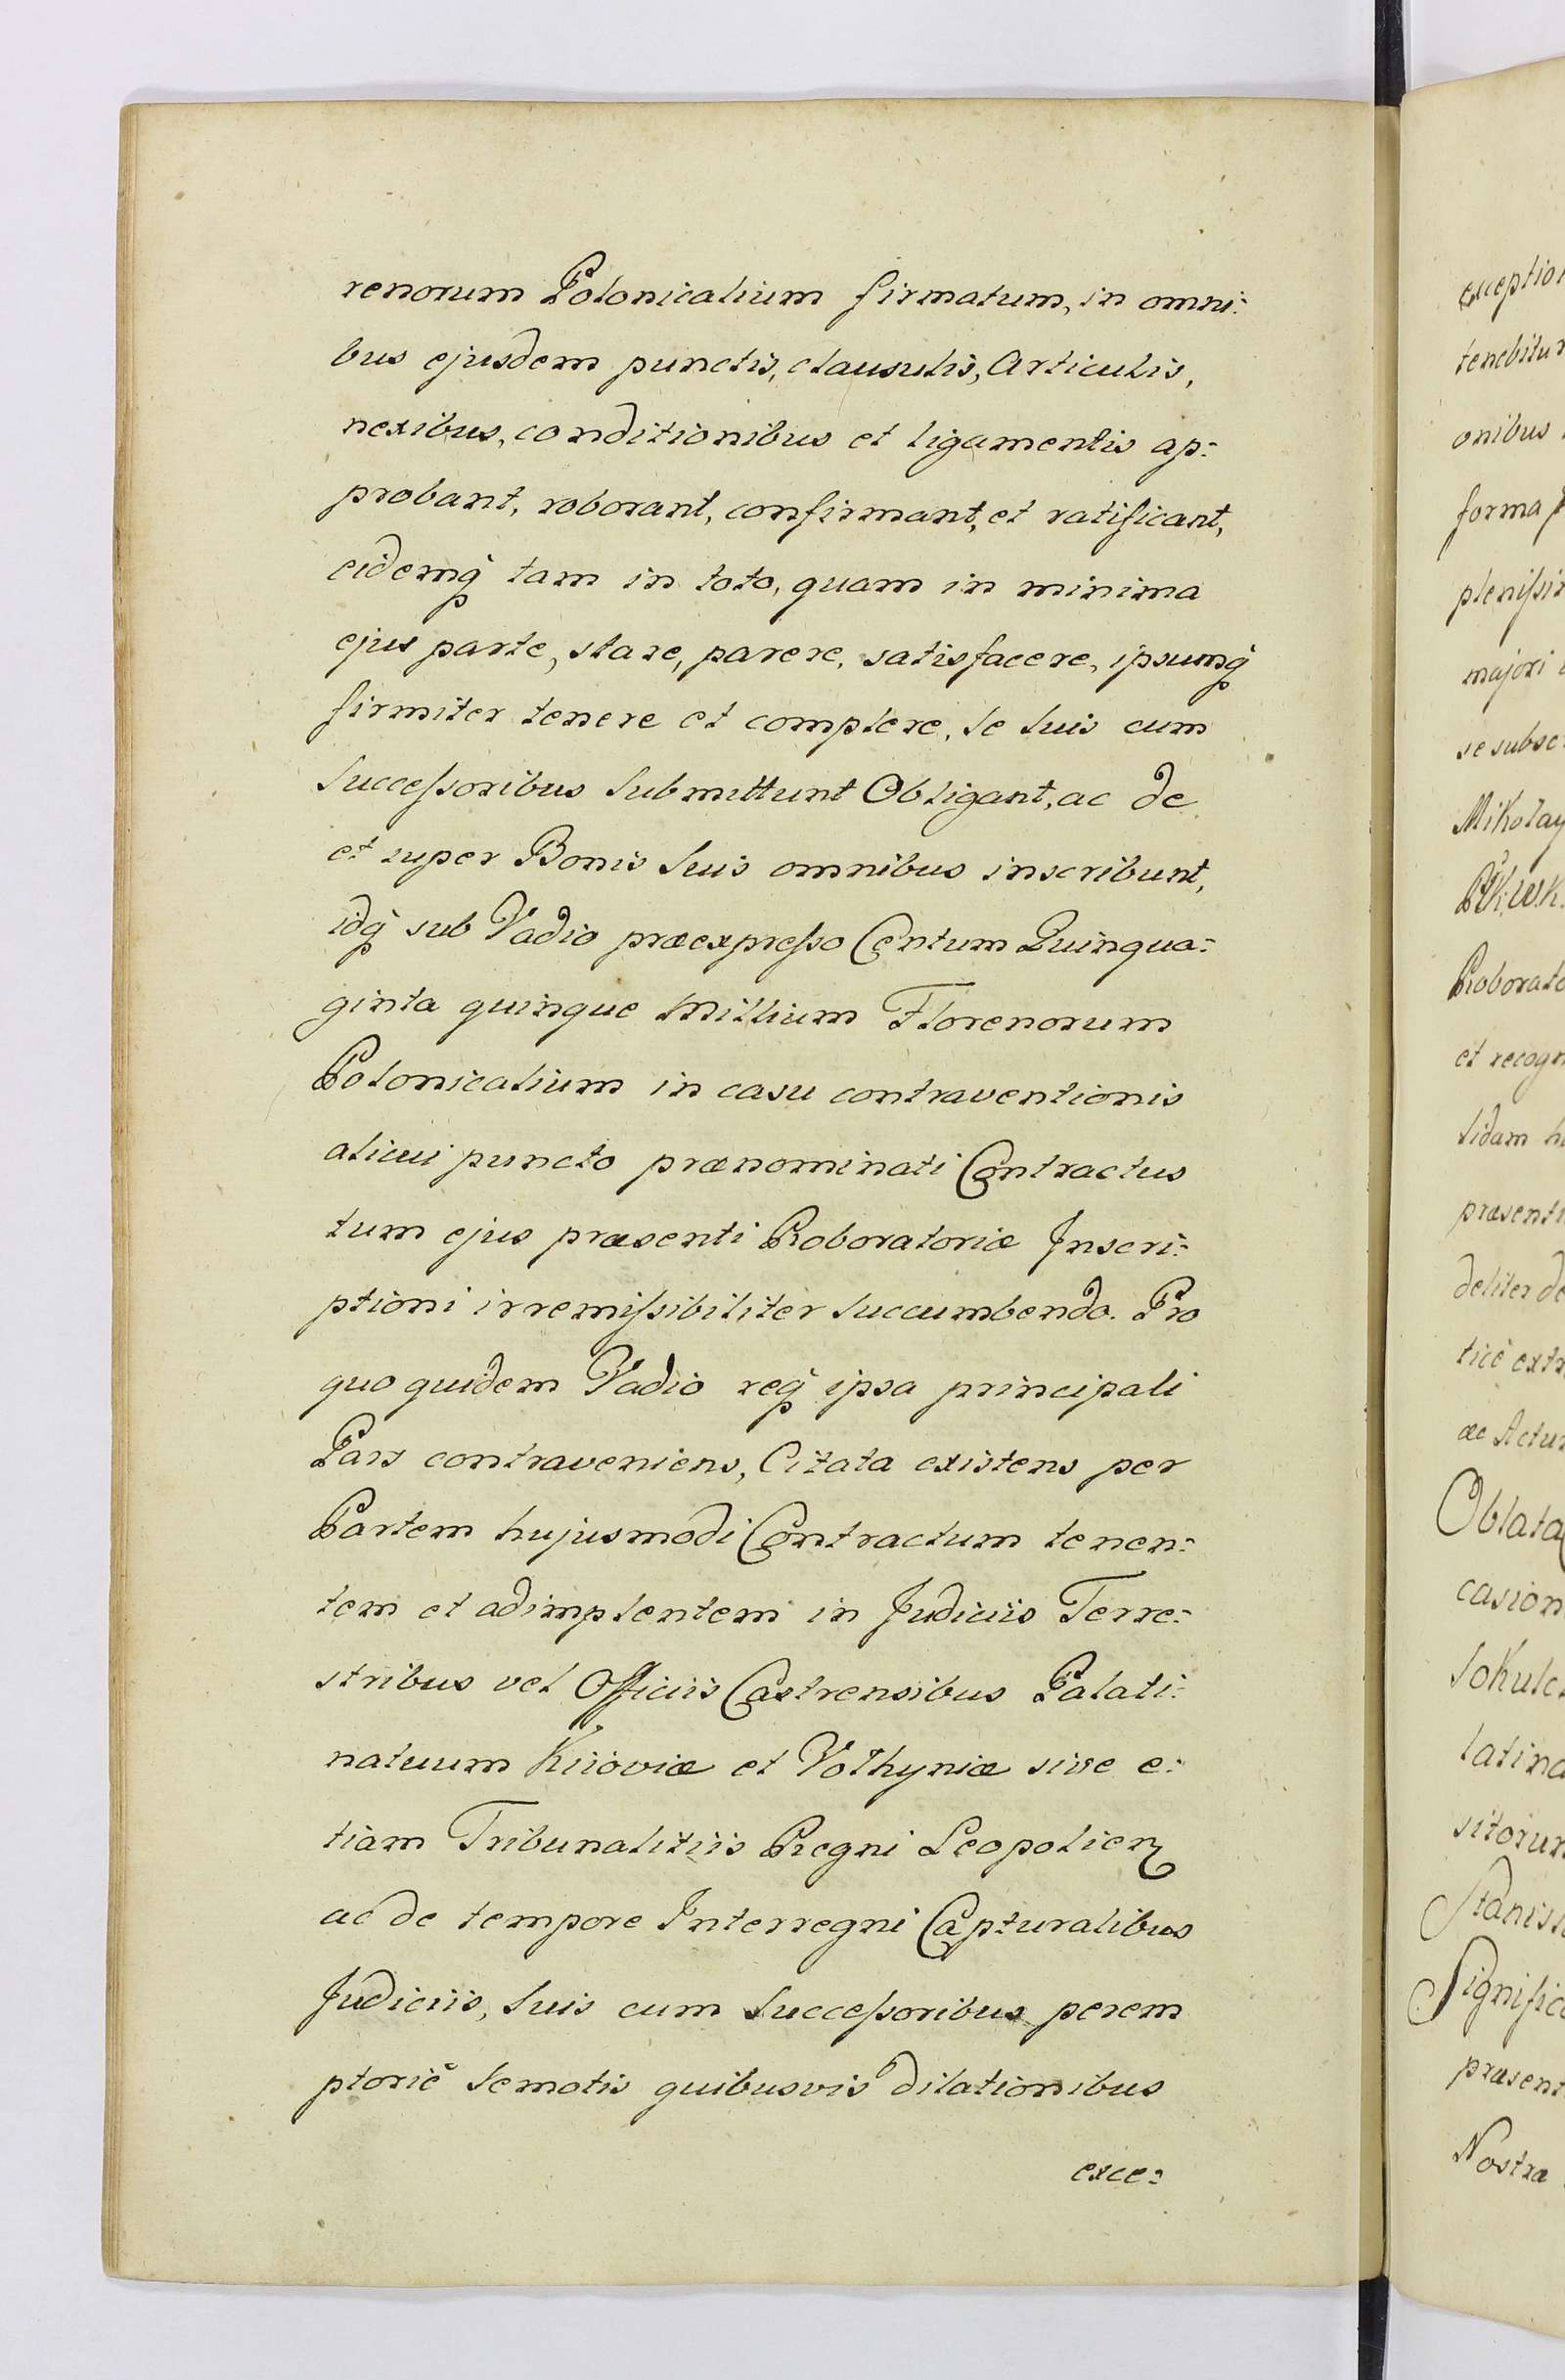 renorum Polonicalium firmatum, in omni:
bus ejusdem punctis, clausulis, Articulis,
nexibus, conditionibus et ligamentis ap:
probant, roborant, confirmant, et ratificant,
eidemq́ tam in toto, quam in minima
ejus parte, stare, parere, satisfacere, ipsumq́
firmiter tenere et complere, se suis cum
Succeſsoribus Submittunt Obligant, ac de
et super Bonis Suis omnibus inscribunt,
idq́ sub Vadio præexpreſso Centum Quinqua:
ginta quinque Millium Florenorum
Polonicalium in casu contraventionis
alicui puncto prænominati Contractus
tum ejus præsenti Roboratoriæ Inscri:
ptioni irremiſsibiliter Succumbendo. Pro
quo quidem Vadio req́ ipsa principali
Pars contraveniens, Citata existens per
Partem hujusmodi Contractum tenen:
tem et adimplentem in Judiciis Terre:
stribus vel Officiis Castrensibus Palati:
natuum Kiioviæ et Volhyniæ sive e:
tiam Tribunalitiis Regni Leopolien
ac de tempore Interregni Capturalibus
Judiciis, Suis cum Succeſsoribus perem
ptoriè Semotis quibusvis dilationibus
exce:
exceptio
tenebitur
onibus
forma
pleniſsi
majori
se subsc
Mikolay
P.K.W.K.
Roborato
et recogn
sidam
præsenti
deliter de
ticè extr
ac Actu
Oblata
casion
Sokule
latina
sitorum
Stanisl
Significa
præsen
Nostræ